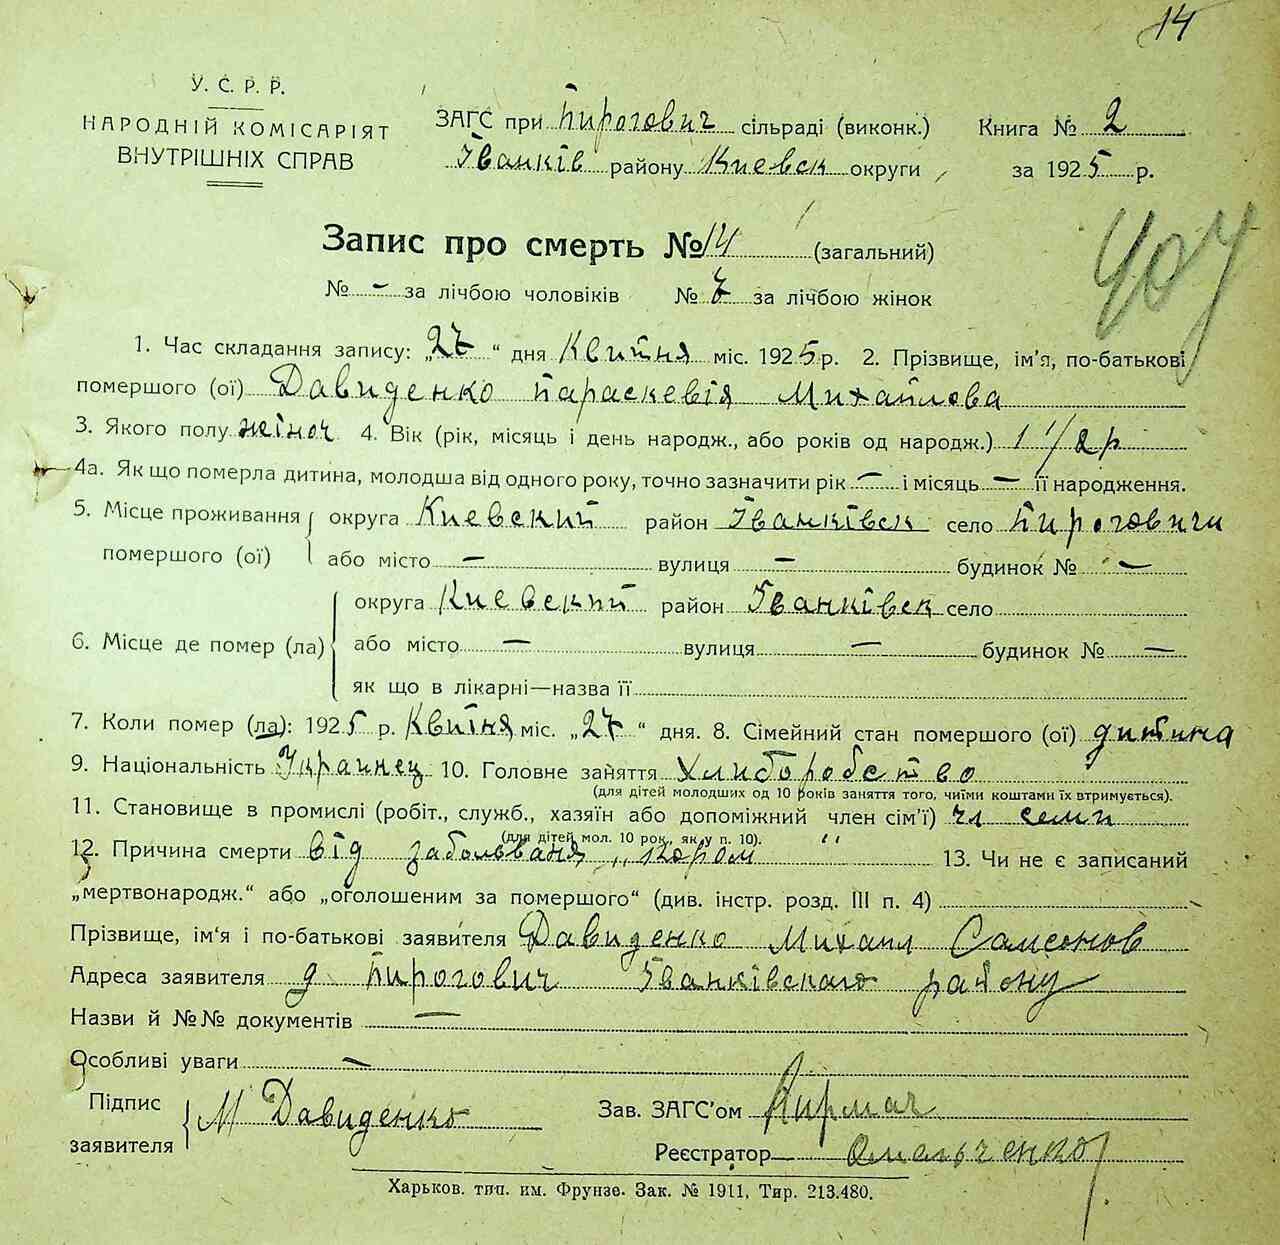 14
У. С. Р. Р.
НАРОДНІЙ КОМІСАРІЯТ
ВНУТРІШНІХ СПРАВ
ЗАГС при Пирогович сільраді (виконк.)
Іванків району Киевск округи
Книга № 2
за 1925 р.
Запис про смерть № 14 (загальний)
№ — за лічбою чоловіків № 7 за лічбою жінок
1. Час складання запису: „27“ дня Квитня міс. 1925 р. 2. Прізвище, ім'я, по-батькові
помершого (ої) Давиденко Параскевія Михайлова
3. Якого полу жіноч 4. Вік (рік, місяць і день народж., або років од народж.) 1 1/2 р
4а. Як що померла дитина, молодша від одного року, точно зазначити рік — і місяць — її народження.
5. Місце проживання помершого (ої) округа Киевский район Іванківск село Пироговичи
або місто — вулиця — будинок № —
6. Місце де помер (ла) округа Киевский район Іванківск село
або місто — вулиця — будинок № —
як що в лікарні—назва її
7. Коли помер (ла): 1925 р. Квитня міс. „27“ дня. 8. Сімейний стан помершого (ої) дитина
9. Національність Украинец 10. Головне заняття хлиборобство
(для дітей молодших од 10 років заняття того, чиїми коштами їх втримується).
11. Становище в промислі (робіт., служб., хазяїн або допоміжний член сім'ї) чл семи
(для дітей мол. 10 рок, як у п. 10).
12. Причина смерти від забольваня „кором" 13. Чи не є записаний
„мертвонародж.“ або „оголошеним за помершого“ (див. інстр. розд. III п. 4)
Прізвище, ім'я і по-батькові заявителя Давиденко Михаил Самсонов
Адреса заявителя д Пирогович Іванківскаго району
Назви й №№ документів —
Особливі уваги —
Підпис заявителя М Давиденко
Зав. ЗАГС'ом Кирмач
Реєстратор Омельченко
Харьков. тип. им. Фрунзе. Зак. № 1911, Тир. 213.480.